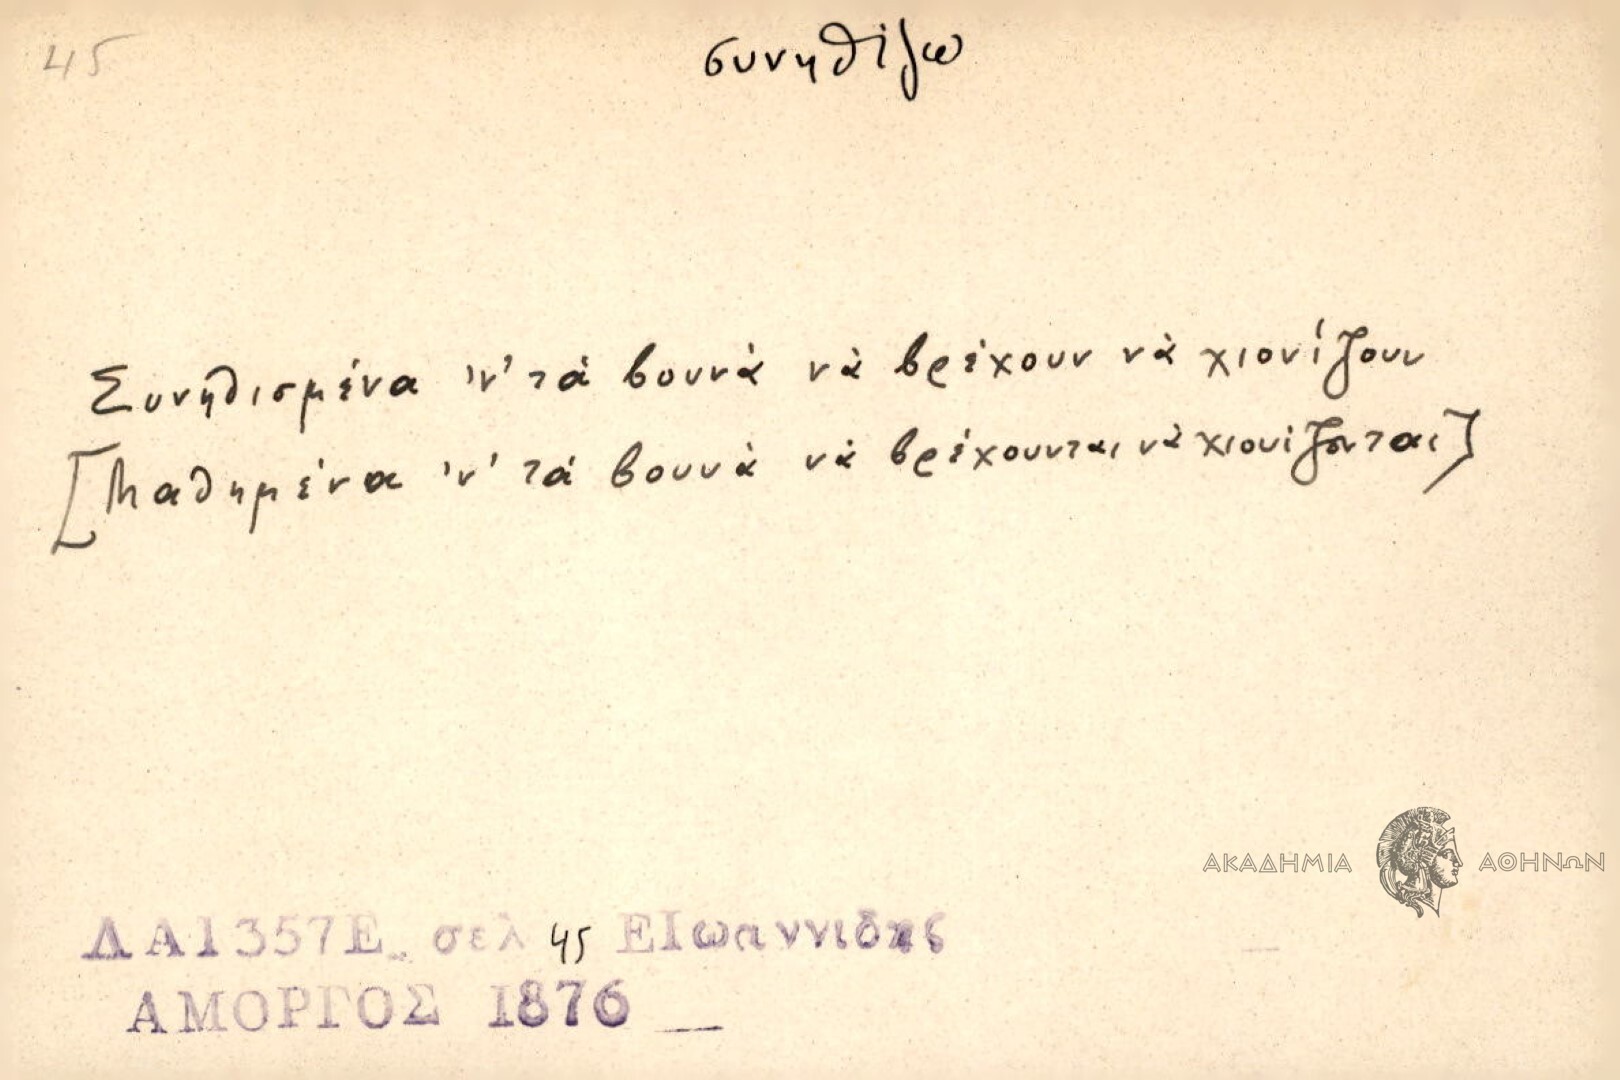 45
συνηθίζω
Συνηθισμένα 'ν' τά βουνὰ νὰ βρέχουν νὰ χιονίζουν
[Μαθημένα 'ν' τά βουνὰ νὰ βρέχουνται νὰ χιονίζονται]
ΑΚΑΔΗΜΙΑ ΑΘΗΝΩΝ
ΔΑ1357Ε σελ 45 ΕΙωαννιδης
ΑΜΟΡΓΟΣ 1876